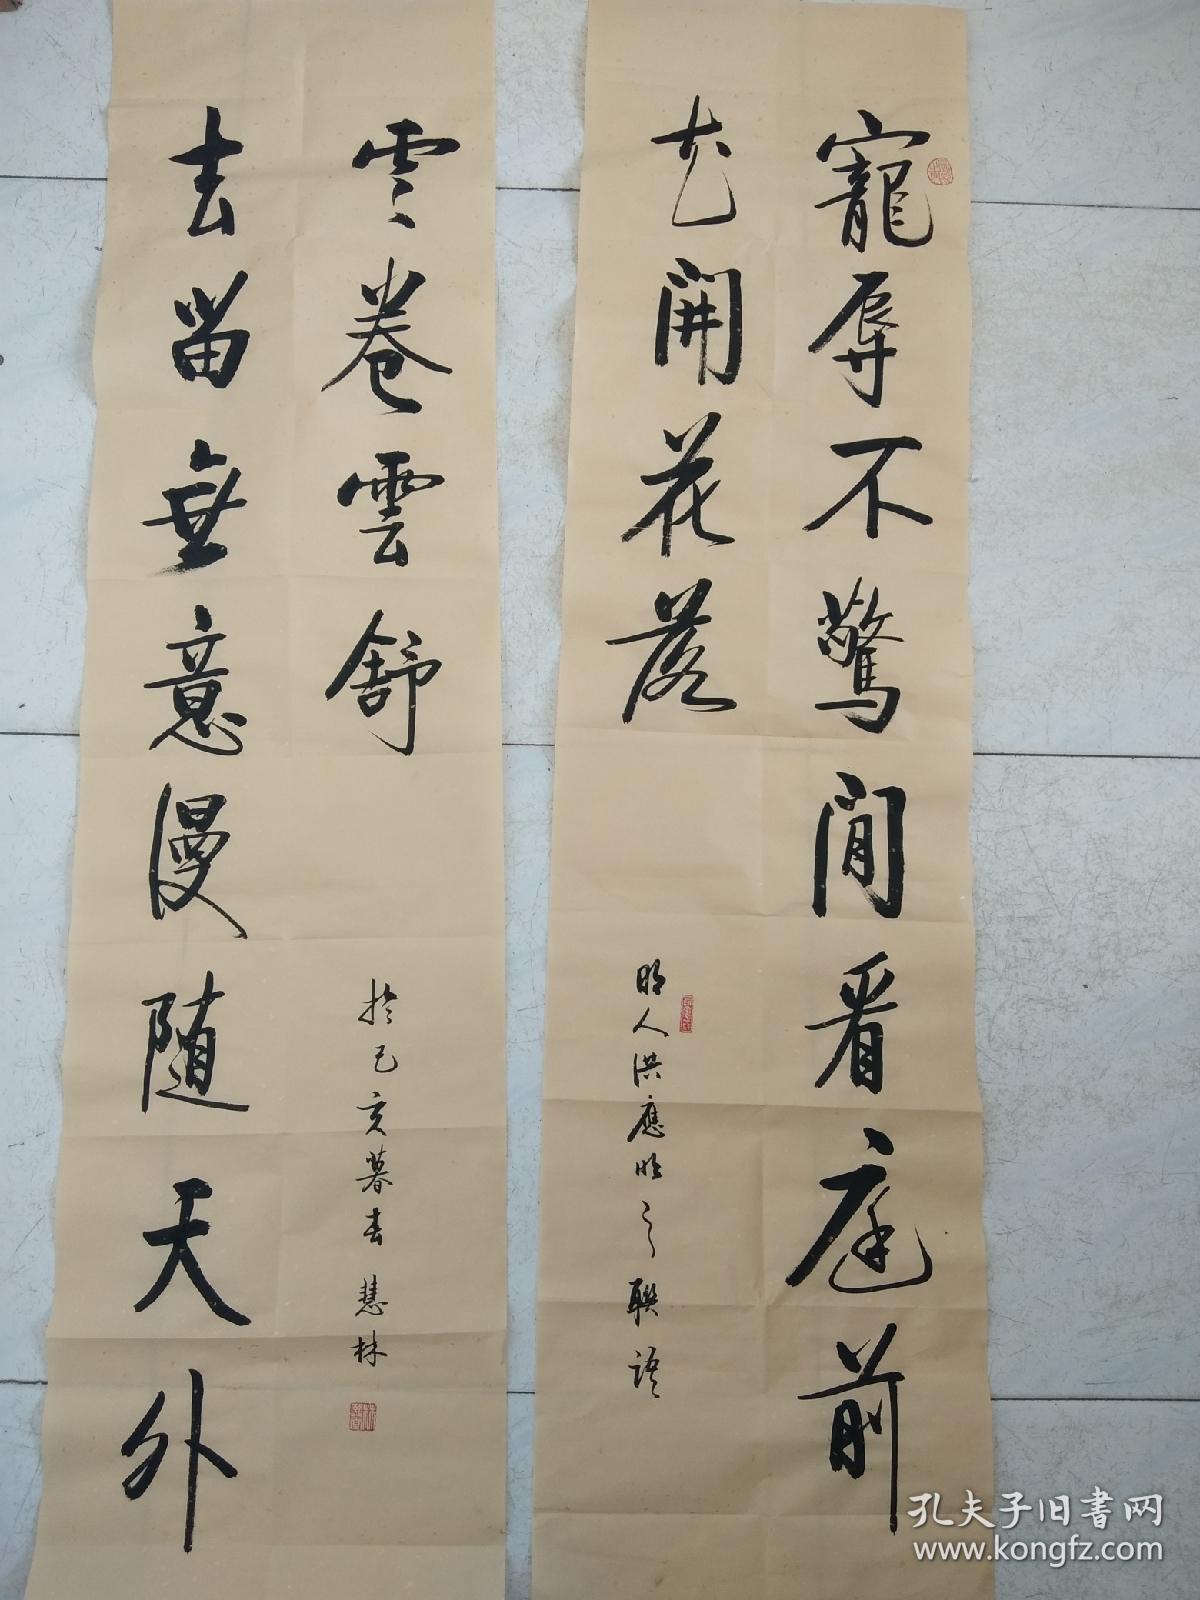 寵辱不驚閒看庭前
花開花落
明人洪應明之聯語
去留無意漫随天外
雲卷雲舒
於己亥暮春慧林
孔夫子旧書网
www.kongfz.com